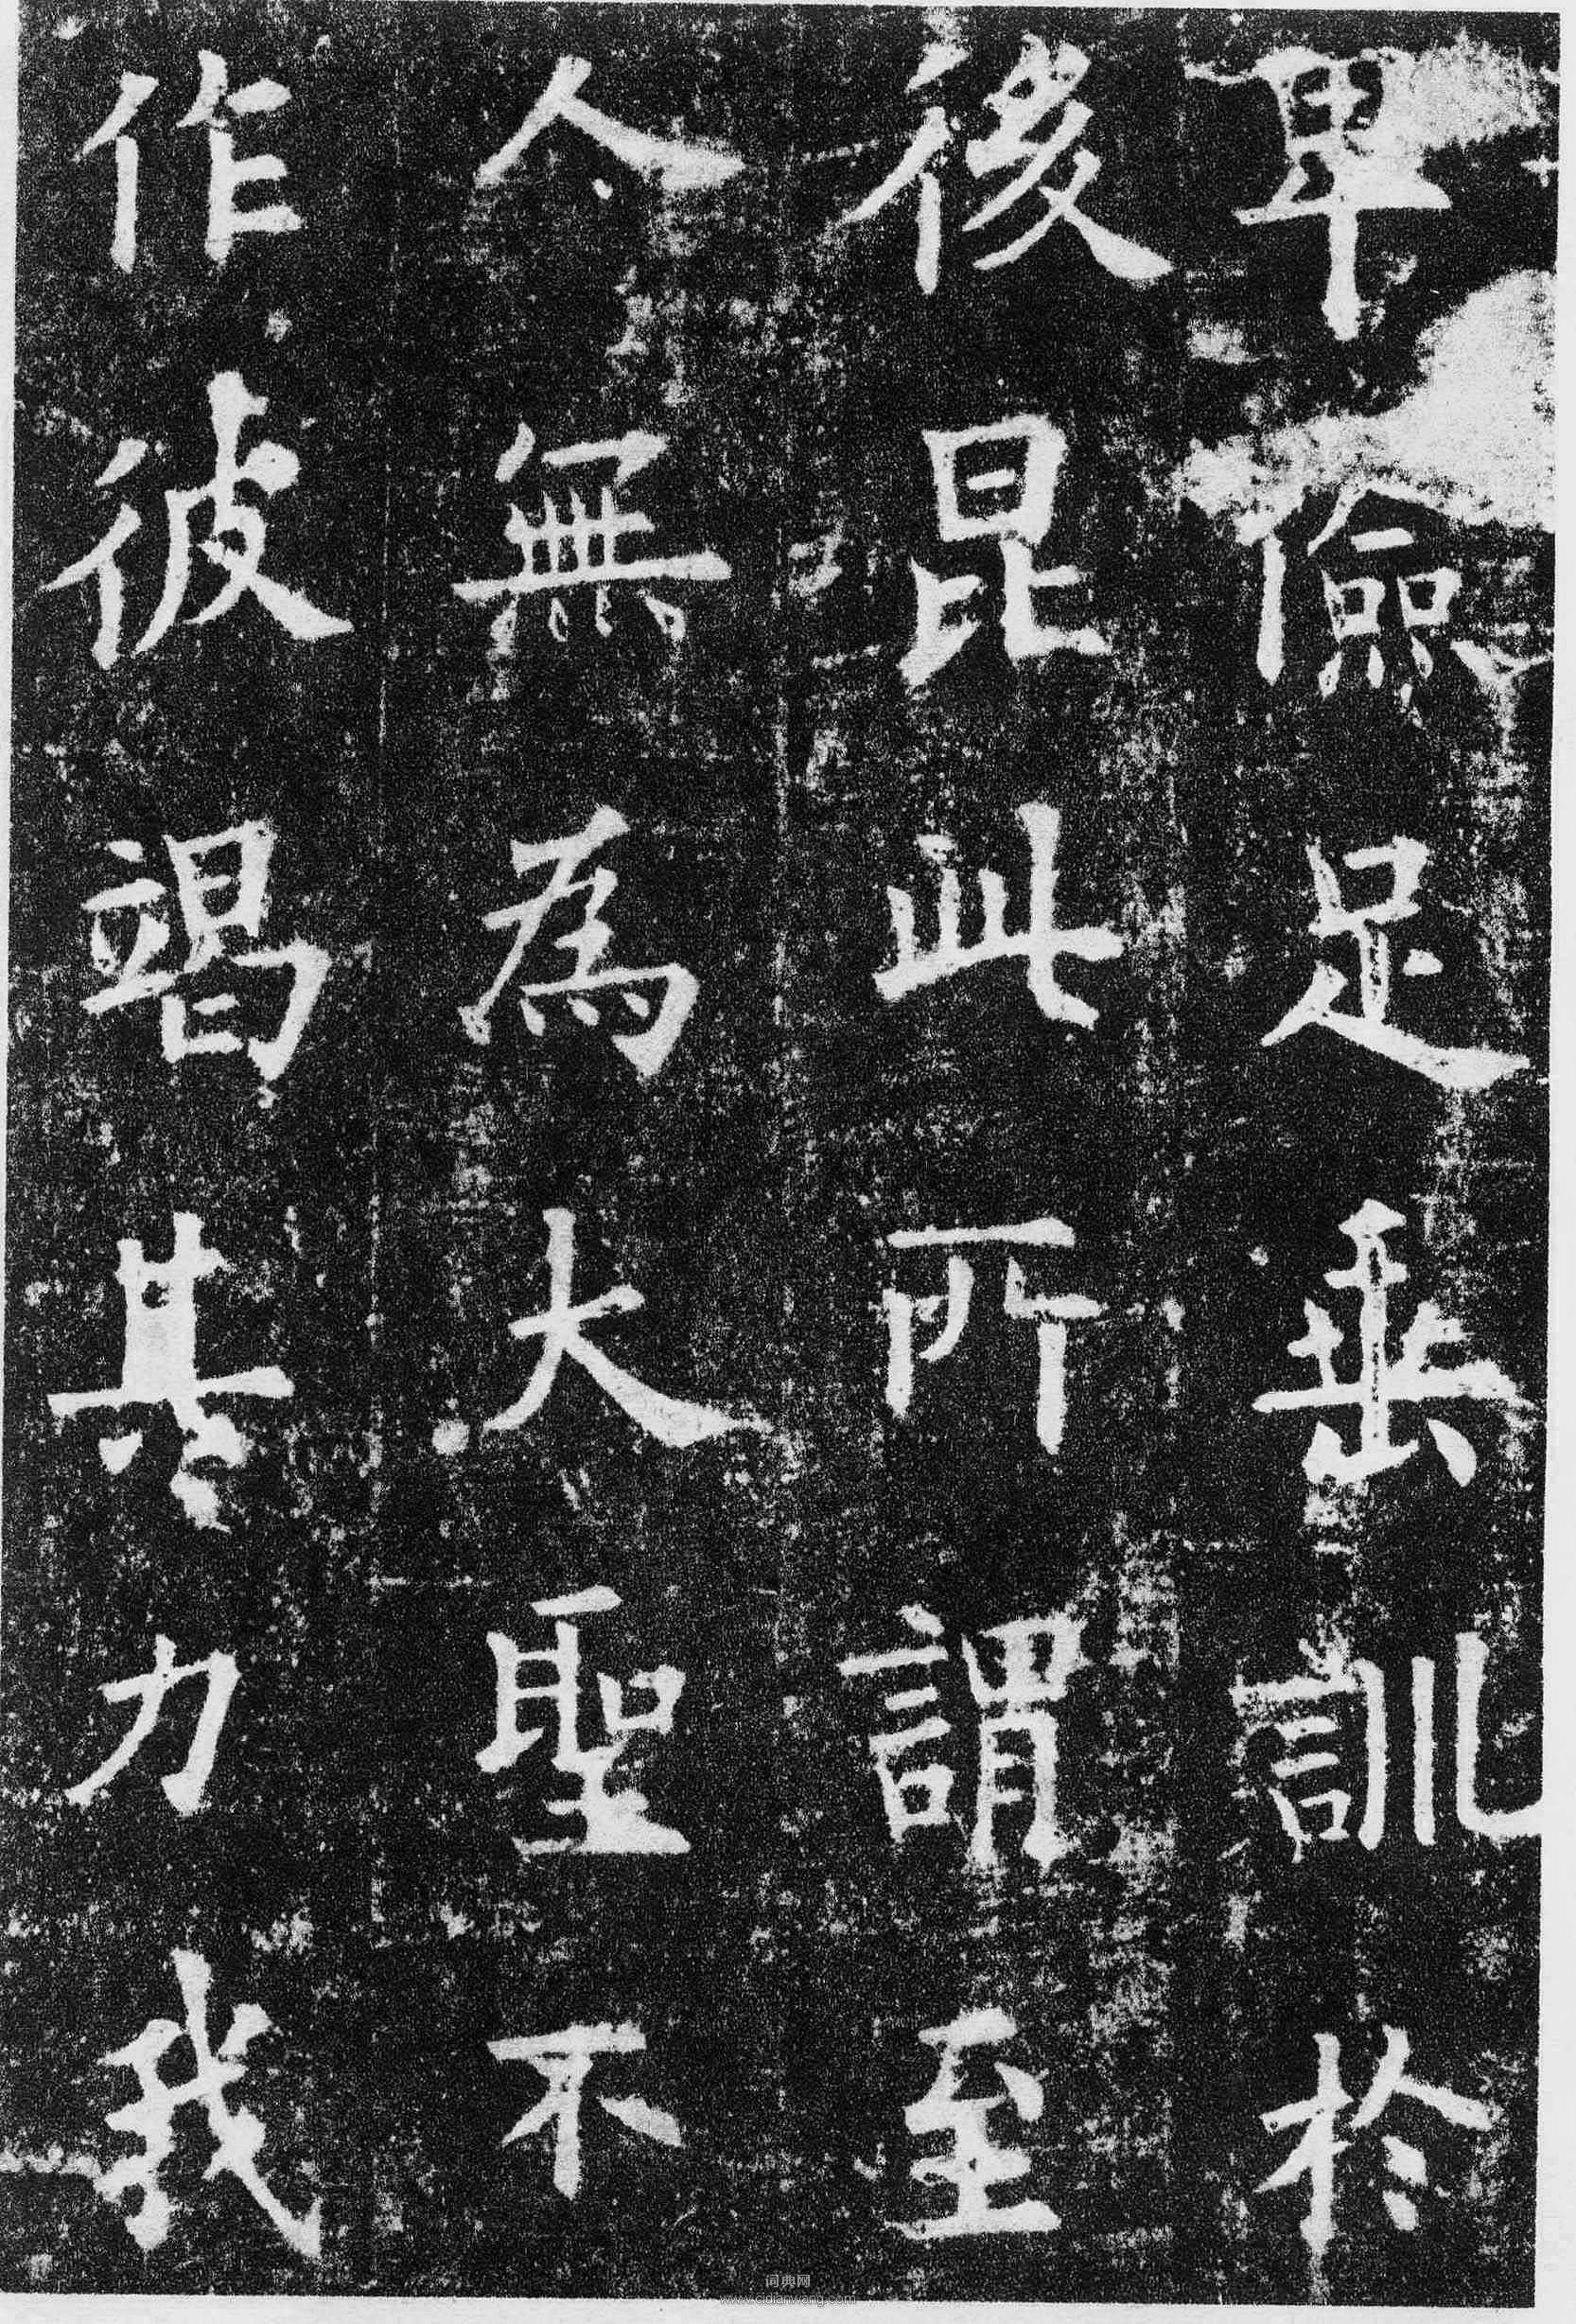 卑儉足垂訓於
後昆此所謂至
人無為大聖不
作彼竭其力我
词典网
www.cidianwang.com